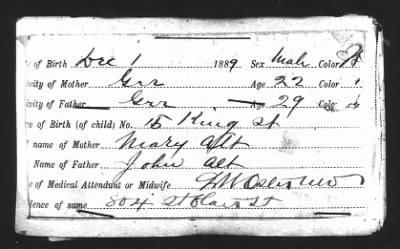 e of Birth Dec 1 1889 Sex Male Color W
ivity of Mother Ger Age 22 Color
ivity of Father Ger Age 29 Colo
e of Birth (of child) No. 15 King St
name of Mother Mary Alt
Name of Father John Alt
e of Medical Attendant or Midwife
dence of same 304 St Clair St